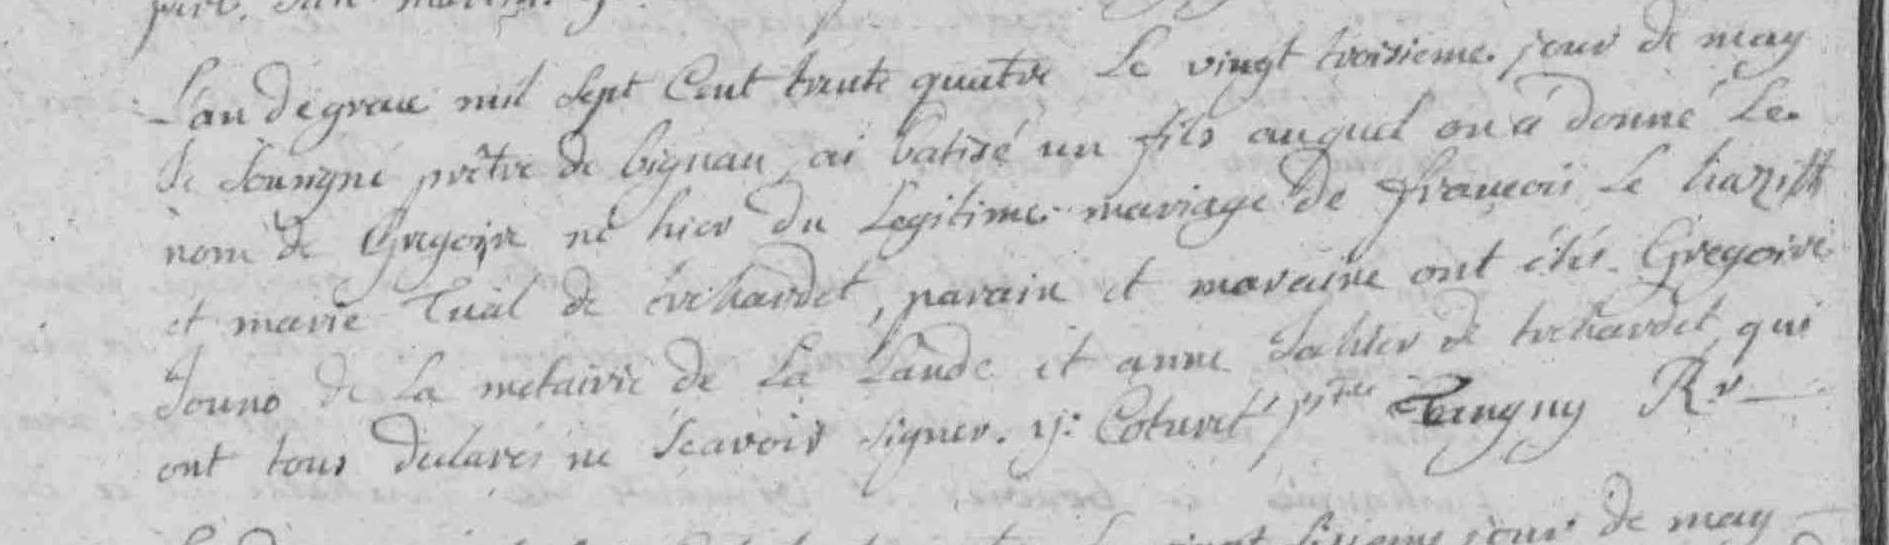 L'an de grace mil sept Cent trente quatre Le vingt troisieme. jour de may
Je soussigné prêtre de bignan ai batisé un fils auquel on a donné Le
nom de Gregoire né hier du Legitime mariage de françois Le
et marie Tual de trehardet, parain et maraine ont étés Gregoire
Jouno de La metairie de La Lande et anne Jahier de trehardet qui
ont tous declarés ne sçavoir signer. ptre Rr
de may